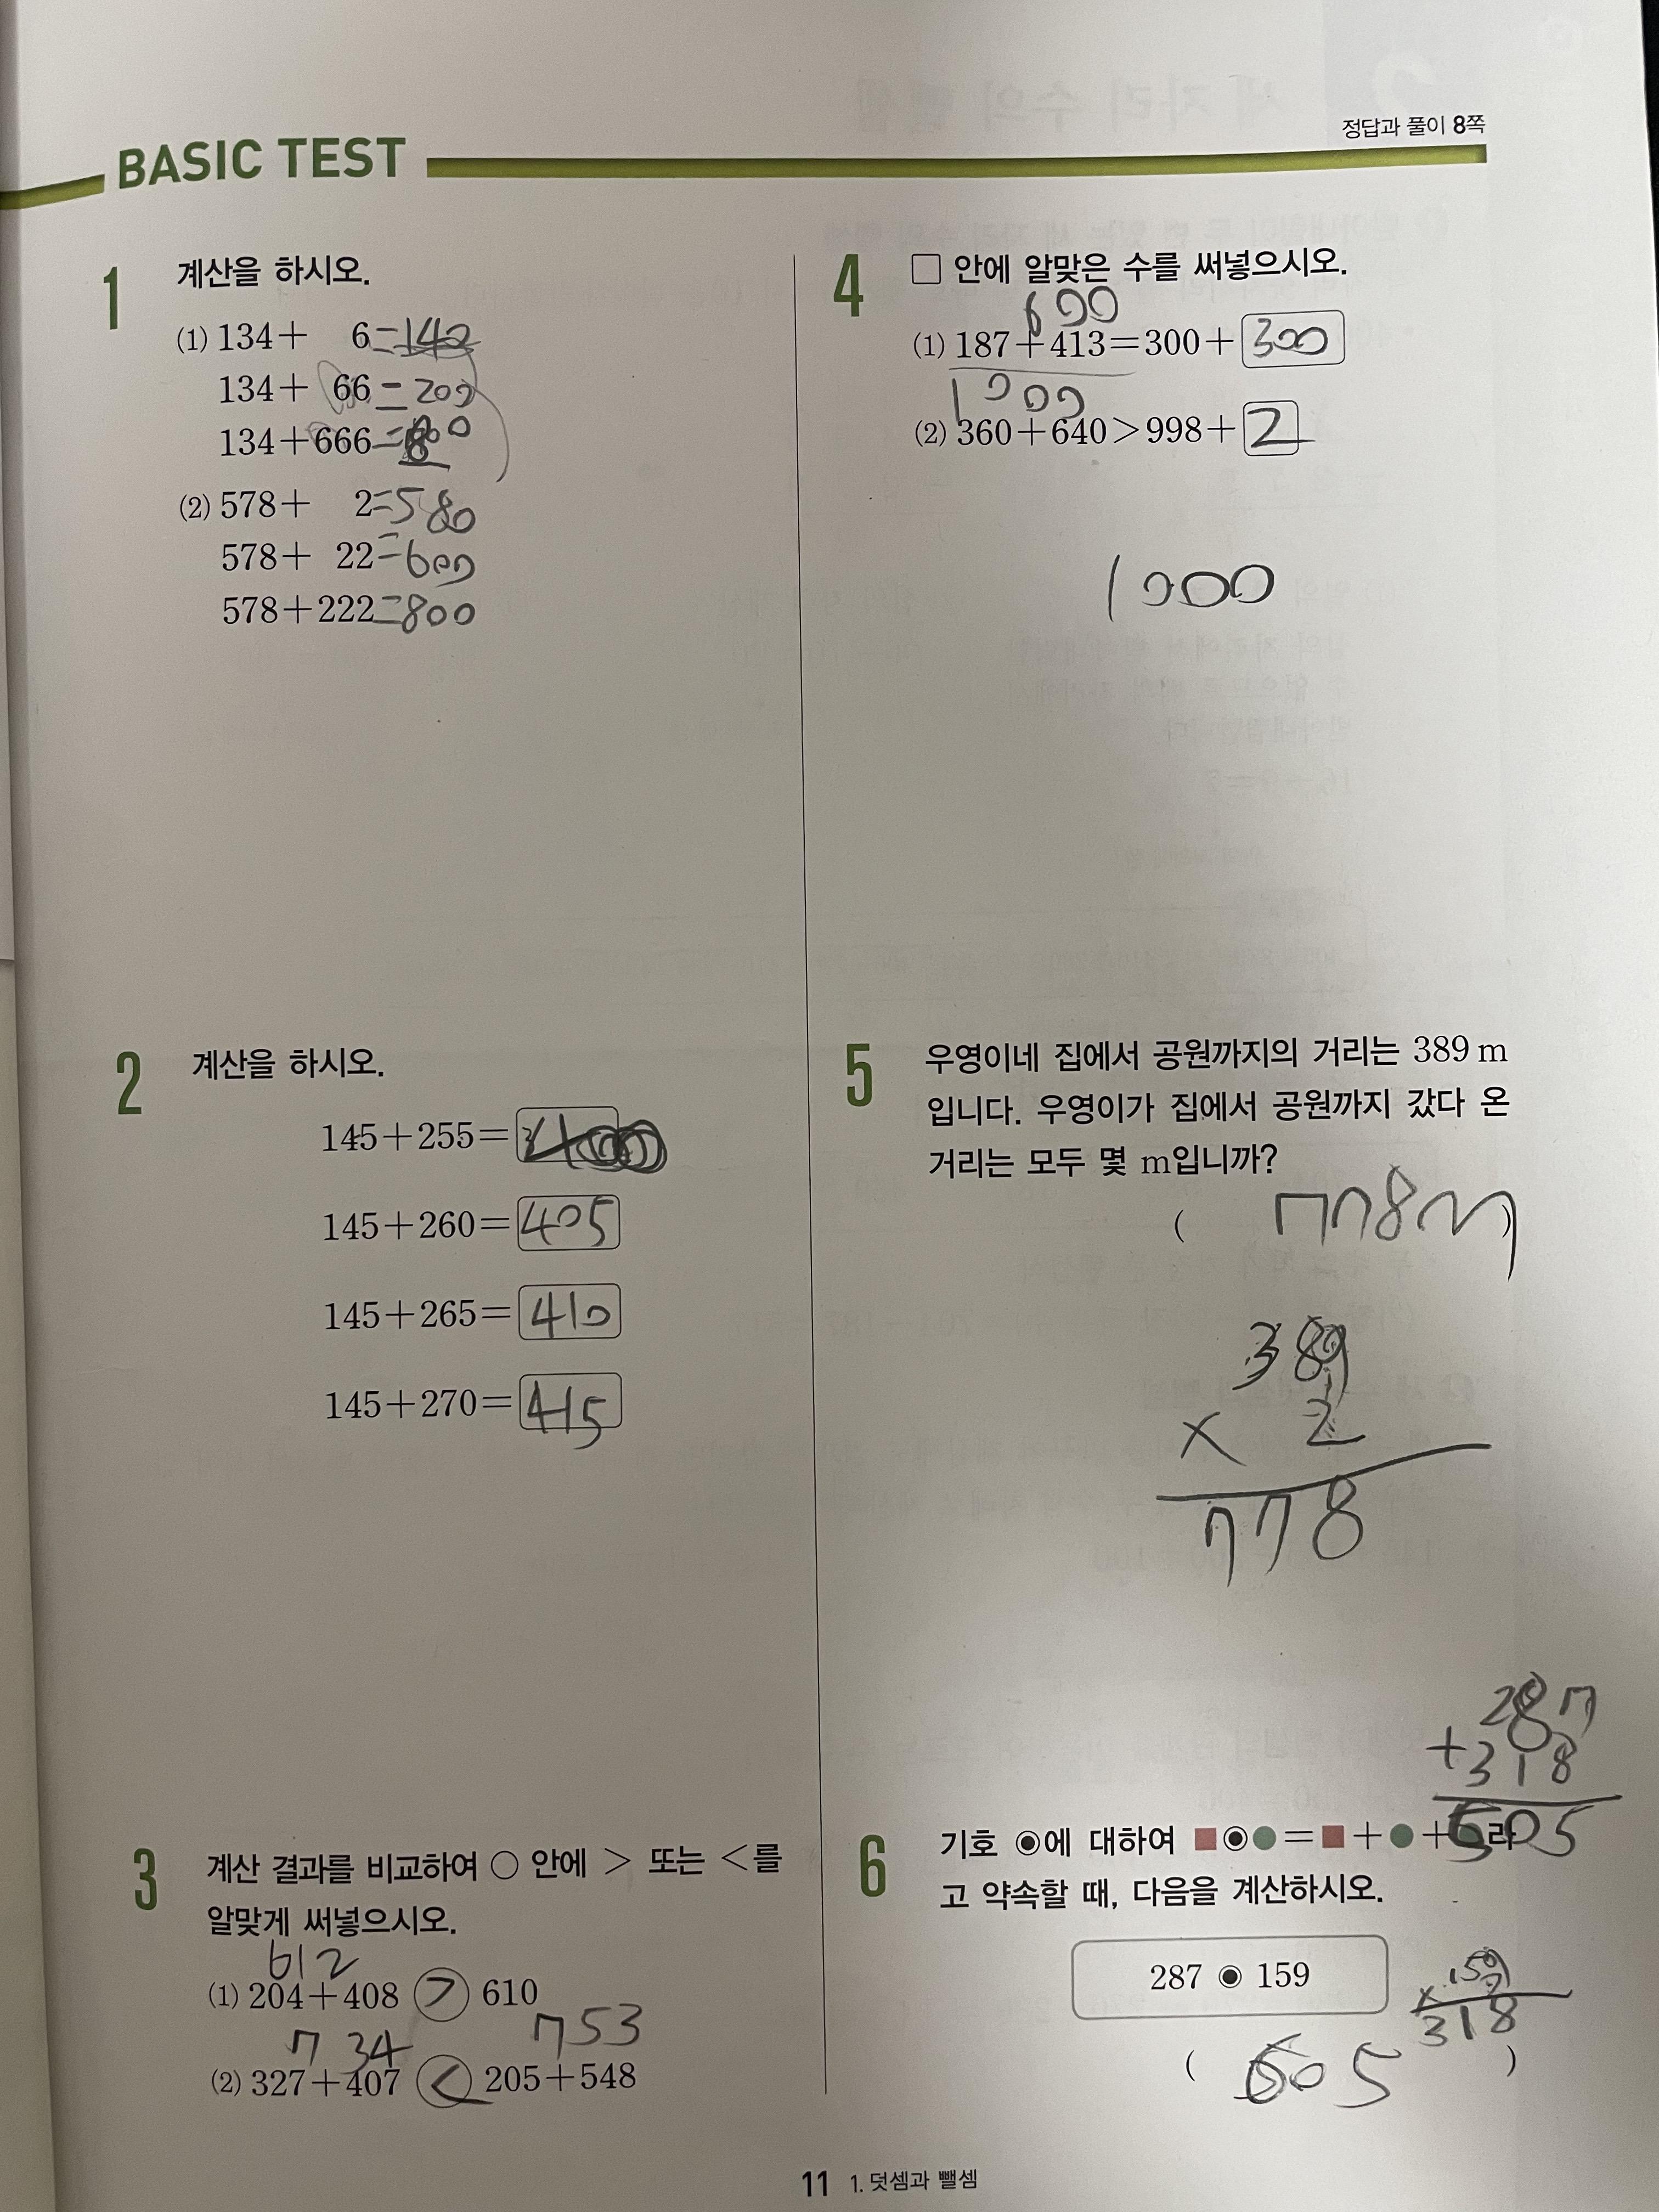 정답과 풀이 8쪽
BASIC TEST
1 계산을 하시오.
(1) 134+ 6=140
134+ 66=200
134+666=800
(2) 578+ 2=580
578+ 22=600
578+222=800
2 계산을 하시오.
145+255=
145+260=405
145+265=410
145+270=415
3 계산 결과를 비교하여 ○ 안에 > 또는 <를
알맞게 써넣으시오.
612
(1) 204+408 > 610
734 753
(2) 327+407 < 205+548
4 □ 안에 알맞은 수를 써넣으시오.
600
(1) 187+413=300+300
1000
(2) 360+640>998+2
1000
5 우영이네 집에서 공원까지의 거리는 389 m
입니다. 우영이가 집에서 공원까지 갔다 온
거리는 모두 몇 m입니까?
( 778m )
389
× 2
778
287
+318
605
6 기호 ◉에 대하여 ■◉●=■+●+●라
고 약속할 때, 다음을 계산하시오.
287 ◉ 159
159
× 2
318
( 605 )
11 1. 덧셈과 뺄셈